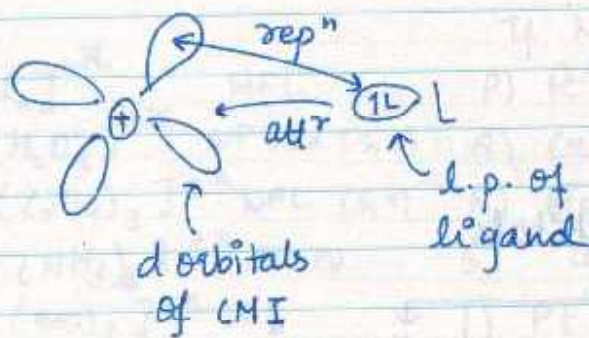 repⁿ
+
1L L
attʳ
l.p. of
ligand
d orbitals
of CMI